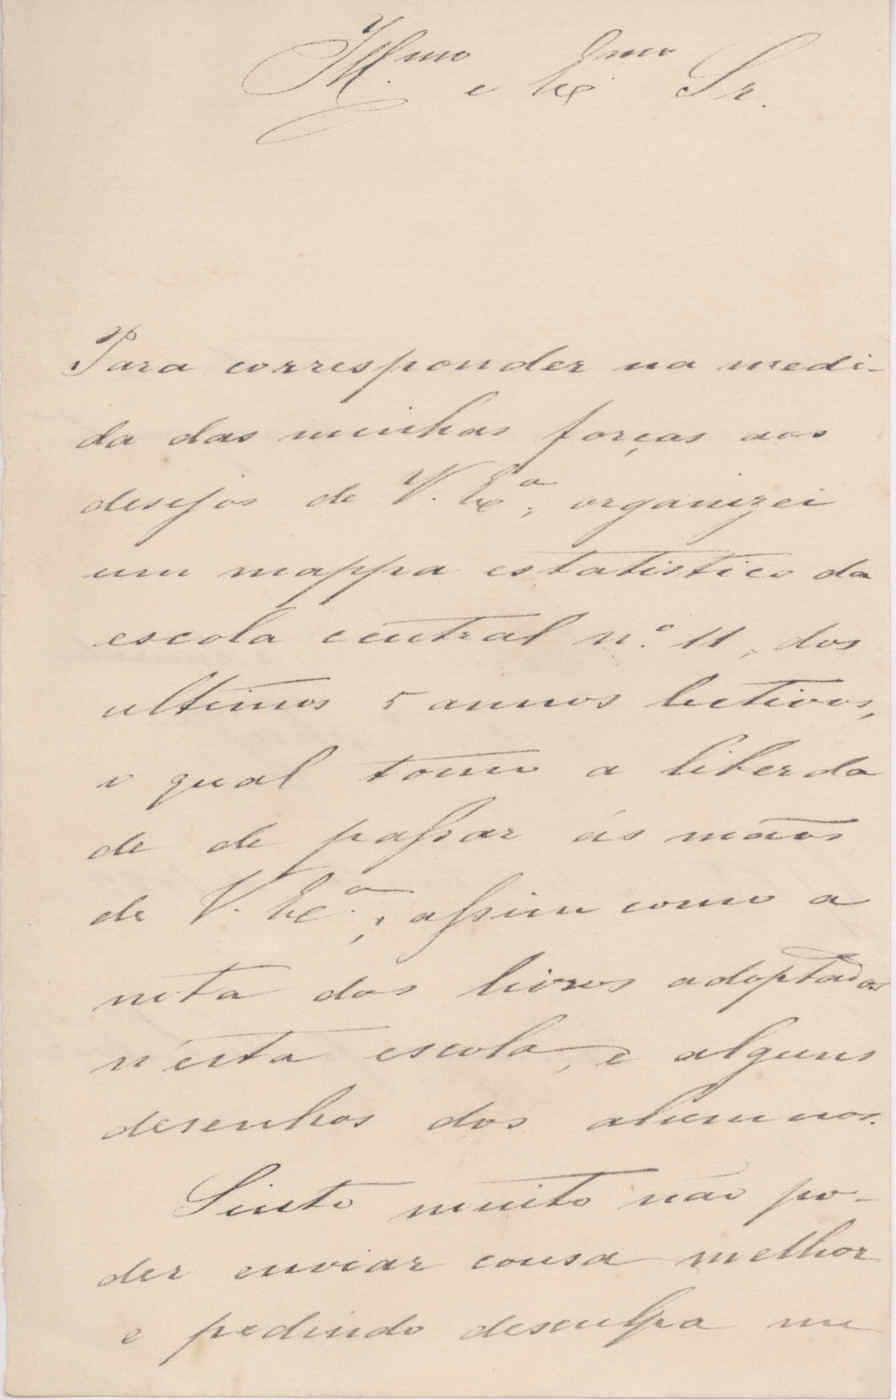 Ill.mo e Ex.mo Sr.
Para corresponder na medi-
da das minhas forças aos
desejos de V. Ex.a, organizei
um mappa estatistico da
escola central n.o 11, dos
ultimos 5 annos lectivos,
o qual tomo a liberda
de de passar ás mãos
de V. Ex.a, assim como a
nota dos livros adoptados
n'esta escola, e alguns
desenhos dos alumnos.
Sinto muito não po-
der enviar cousa melhor
e pedindo desculpa me